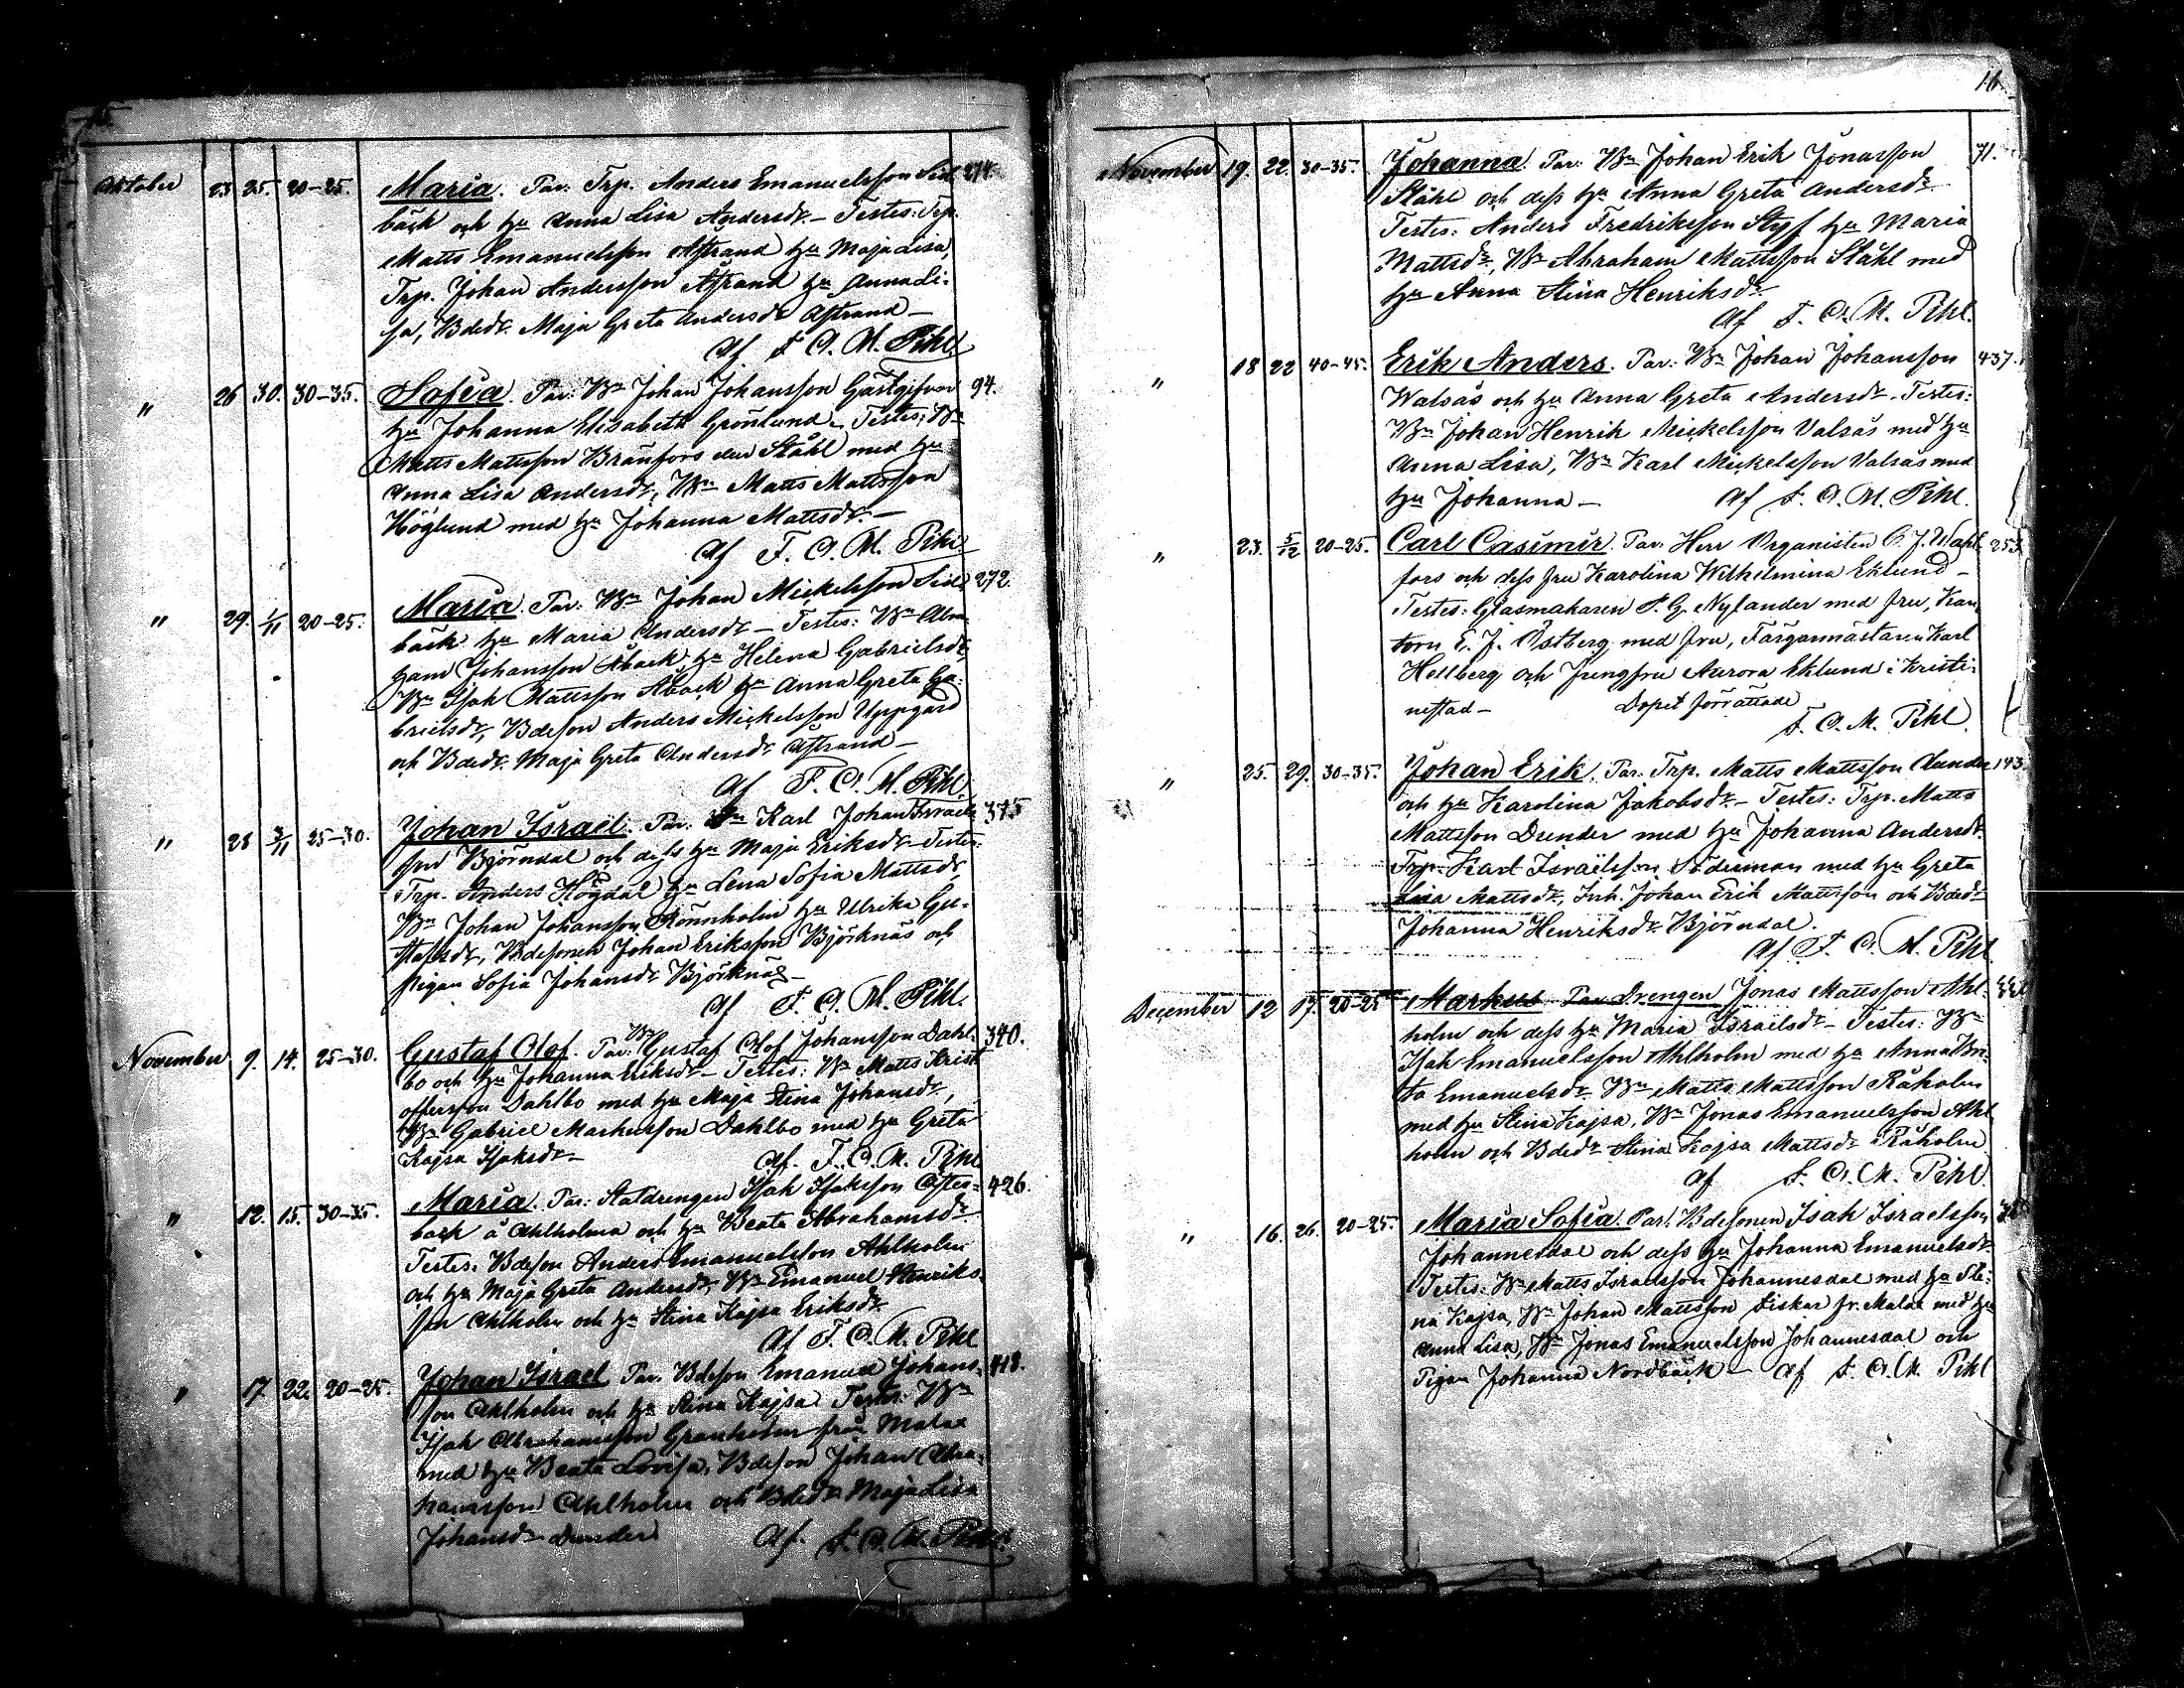 15
Oktober 23 25. 20-25. Maria. Par: Trp. Anders Emanuelsson Sid 274.
bäck och hu Anna Lisa Andersdr. - Testes: Trp.
Matts Emanuelsson Åstrand hu Maja Lisa,
Trp. Johan Andersson Åstrand hu Anna Li-
sa, Bdedr. Maja Greta Andersdr Åstrand -
Af F. O. M. Pihl
" 26 30. 30-35. Sofia. Par: Bn Johan Johansson Gästgifvar 94.
hu Johanna Elisabeth Grönlund - Testes: Bn
Matts Mattsson Brännfors Ståhl med hu
Anna Lisa Andersdr, Bn Matts Mattsson
Höglund med hu Johanna Mattsdr. -
Af F. O. M. Pihl
" 29. 1/11 20-25. Maria. Par: Bn Johan Mickelsson Sid 272.
bäck hu Maria Andersdr - Testes: Bn Abra
ham Johansson Åback hu Helena Gabrielsdr,
Bn Isak Mattsson Åback hu Anna Greta Ga-
brielsdr, Bdeson Anders Mickelsson Uppgård
och Bdedr. Maja Greta Andersdr Åstrand -
Af F. O. M. Pihl.
" 28 3/11 25-30. Johan Israel. Par: Bn Karl Johan Israels 375
son Björndal och dess hu Maja Eriksdr - Testes:
Trp. Anders Högdal hu Lena Sofia Mattsdr,
Bn Johan Johansson Rönnholm hu Ulrika Gu-
stafsdr, Bdesonen Johan Eriksson Björknäs och
pigan Sofia Johansdr Björknäs -
Af F. O. M. Pihl.
November 9. 14. 25-30. Gustaf Olof. Par: Bn Gustaf Olof Johansson Dahl- 340.
bo och hu Johanna Eriksdr - Testes: Bn Matts Krist
offersson Dahlbo med hu Maja Stina Johansdr,
Bn Gabriel Markusson Dahlbo med hu Greta
Kajsa Isaksdr -
Af. F. O. M. Pihl
" 12. 15. 30-35. Maria. Par: Statdrengen Isak Isaksson Öster- 426.
back å Ahlholma och hu Beata Abrahamsdr
Testes: Bdeson Anders Emanuelsson Ahlholm
och hu Maja Greta Andersdr, Bn Emanuel Henriks-
son Ahlholm och hu Stina Kajsa Eriksdr
Af F. O. M. Pihl
" 17. 22. 20-25. Johan Israel Par. Bdeson Emanuel Johans- 418.
son Ahlholm och hu Stina Kajsa Testes: Bn
Isak Abrahamsson Granholm från Malax
med hu Beata Lovisa, Bdeson Johan Abra-
hamsson Ahlholm och Bdedr Maja Lisa
Johansdr Dunder
Af. F. O. M. Pihl
16.
November 19. 22. 30-35. Johanna. Par: Bn Johan Erik Jonasson 71.
Ståhl och dess hu Anna Greta Andersdr
Testes: Anders Fredriksson Styf hu Maria
Mattsdr, Bn Abraham Mattsson Ståhl med
hu Anna Stina Henriksdr
Af F. O. M. Pihl.
" 18 22 40-45. Erik Anders. Par: Bn Johan Johansson 437.
Walsås och hu Anna Greta Andersdr. Testes:
Bn Johan Henrik Mickelsson Valsås med hu
Anna Lisa, Bn Karl Mickelsson Valsås med
hu Johanna - Af F. O. M. Pihl.
" 23. 5/12 20-25. Carl Casimir. Par: Herr Organisten C. J. Wahl 253
fors och dess fru Karolina Wilhelmina Eklund -
Testes: Glasmakaren S. G. Nylander med fru, Kan
torn E. J. Östberg med fru, Färgarmästaren Karl
Hellberg och Jungfru Aurora Eklund i Kristi-
nestad - Dopet förrättade
F. O. M. Pihl.
" 25. 29. 30-35. Johan Erik. Par: Trp. Matts Mattsson Dunder 143
och hu Karolina Jakobsdr - Testes: Trp. Matts
Mattsson Dunder med hu Johanna Andersdr.
Trp Karl Israelsson Söderman med hu Greta
Lisa Mattsdr, Inh. Johan Erik Mattsson och Bdedr
Johanna Henriksdr Björndal.
Af F. O. M. Pihl
December 12 17. 20-25 Markus. Par Drengen Jonas Mattsson Ahl-
holm och dess hu Maria Israelsdr - Testes: Bn
Isak Emanuelsson Ahlholm med hu Anna Bri-
ta Emanuelsdr. Bn Matts Mattsson Råholm
med hu Stina Kajsa, Bn Jonas Emanuelsson Ahl
holm och Bdedr Stina Kajsa Mattsdr Råholm
Af F. O. M. Pihl.
" 16. 26. 20-25. Maria Sofia. Par: Bdesonen Isak Israelsson
Johannesdal och dess hu Johanna Emanuelsdr.
Testes: Bn Matts Israelsson Johannesdal med hu Sti-
na Kajsa, Bn Johan Mattsson Fiskar fr. Malax med hu
Anna Lisa, Bn Jonas Emanuelsson Johannesdal och
Pigan Johanna Nordbäck - Af F. O. M. Pihl